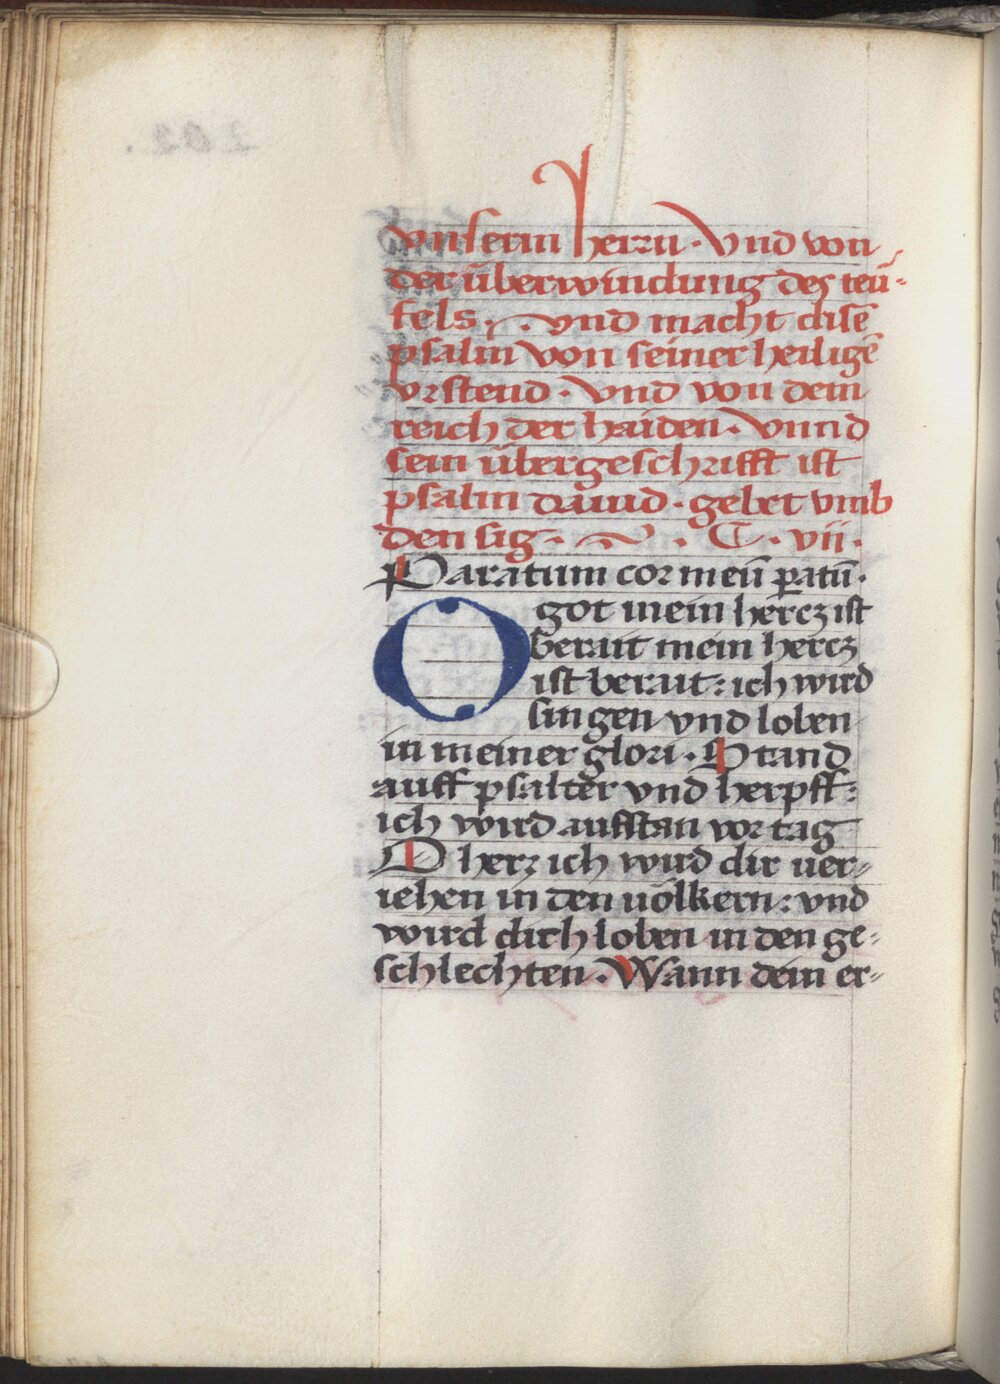 vnserm herrn · Vnd von
der überwindung des teü-
fels · vnd macht disē
psalm von seiner heiligē
vrstend · Vnd von dem
reich der haiden · Vnnd
sein übergeschrifft ist
psalm dauid · gebet vmb
den sig · C · vii ·
Paratum cor meū ꝑatū ·
O got mein hercz ist
berait mein hercz
ist berait : ich wird
singen vnd loben
in meiner glori · Stand
auff psalter vnd herpff :
ich wird auffstan vor tag
O herz ich wird dir ver-
iehen in den völkern : vnd
wird dich loben in den ge-
schlechten · Wann dein er-